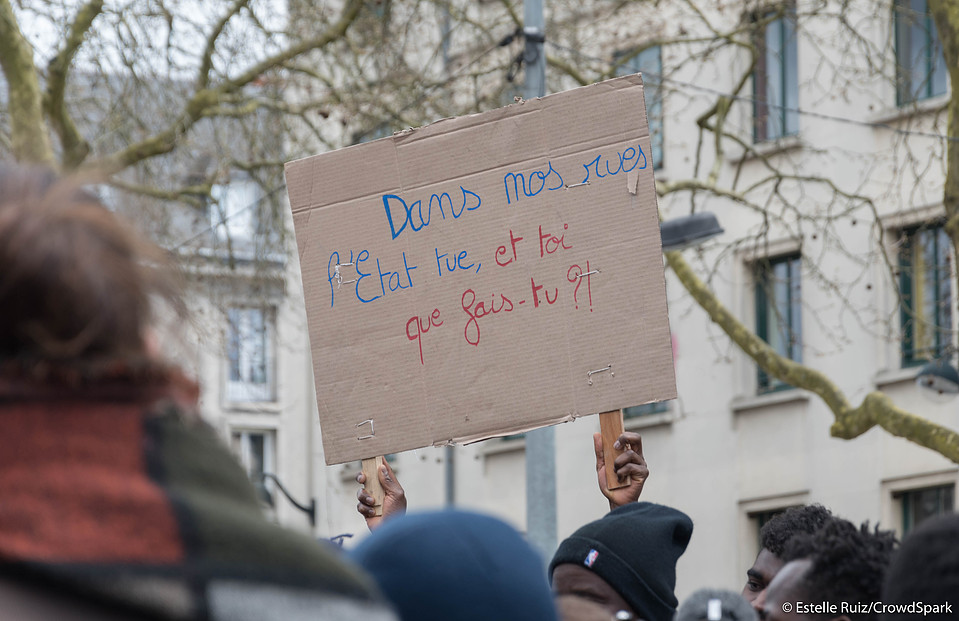 Dans nos rues
Etat tue, et toi
que fais-tu ?!
© Estelle Ruiz/CrowdSpark